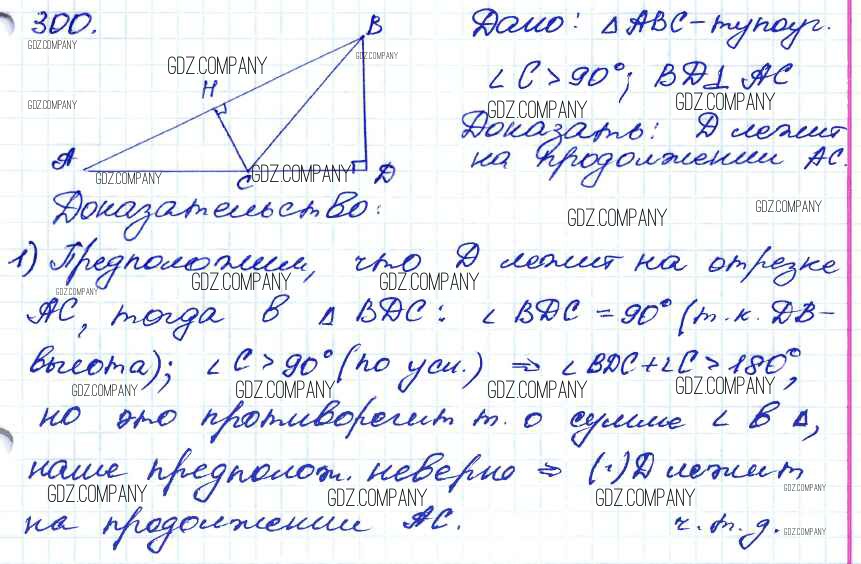 300.
GDZ.COMPANY
B
Дано: △ABC-тупоуг.
GDZ.COMPANY
GDZ.COMPANY
∠C>90°; BD⊥AC
H
GDZ.COMPANY
GDZ.COMPANY
GDZ.COMPANY
Доказать: D лежит
на продолжении AC.
A
C
D
GDZ.COMPANY
GDZ.COMPANY
Доказательство:
GDZ.COMPANY
GDZ.COMPANY
1) Предположим, что D лежит на отрезке
GDZ.COMPANY
GDZ.COMPANY
GDZ.COMPANY
AC, тогда в △BDC: ∠BDC=90° (т.к. DB-
высота); ∠C>90° (по усл.) ⇒ ∠BDC+∠C>180°,
GDZ.COMPANY
GDZ.COMPANY
GDZ.COMPANY
GDZ.COMPANY
но это противоречит т. о сумме ∠ в △,
наше предполож. неверно ⇒ (·)D лежит
GDZ.COMPANY
GDZ.COMPANY
GDZ.COMPANY
GDZ.COMPANY
на продолжении AC.
ч.т.д.
GDZ.COMPANY